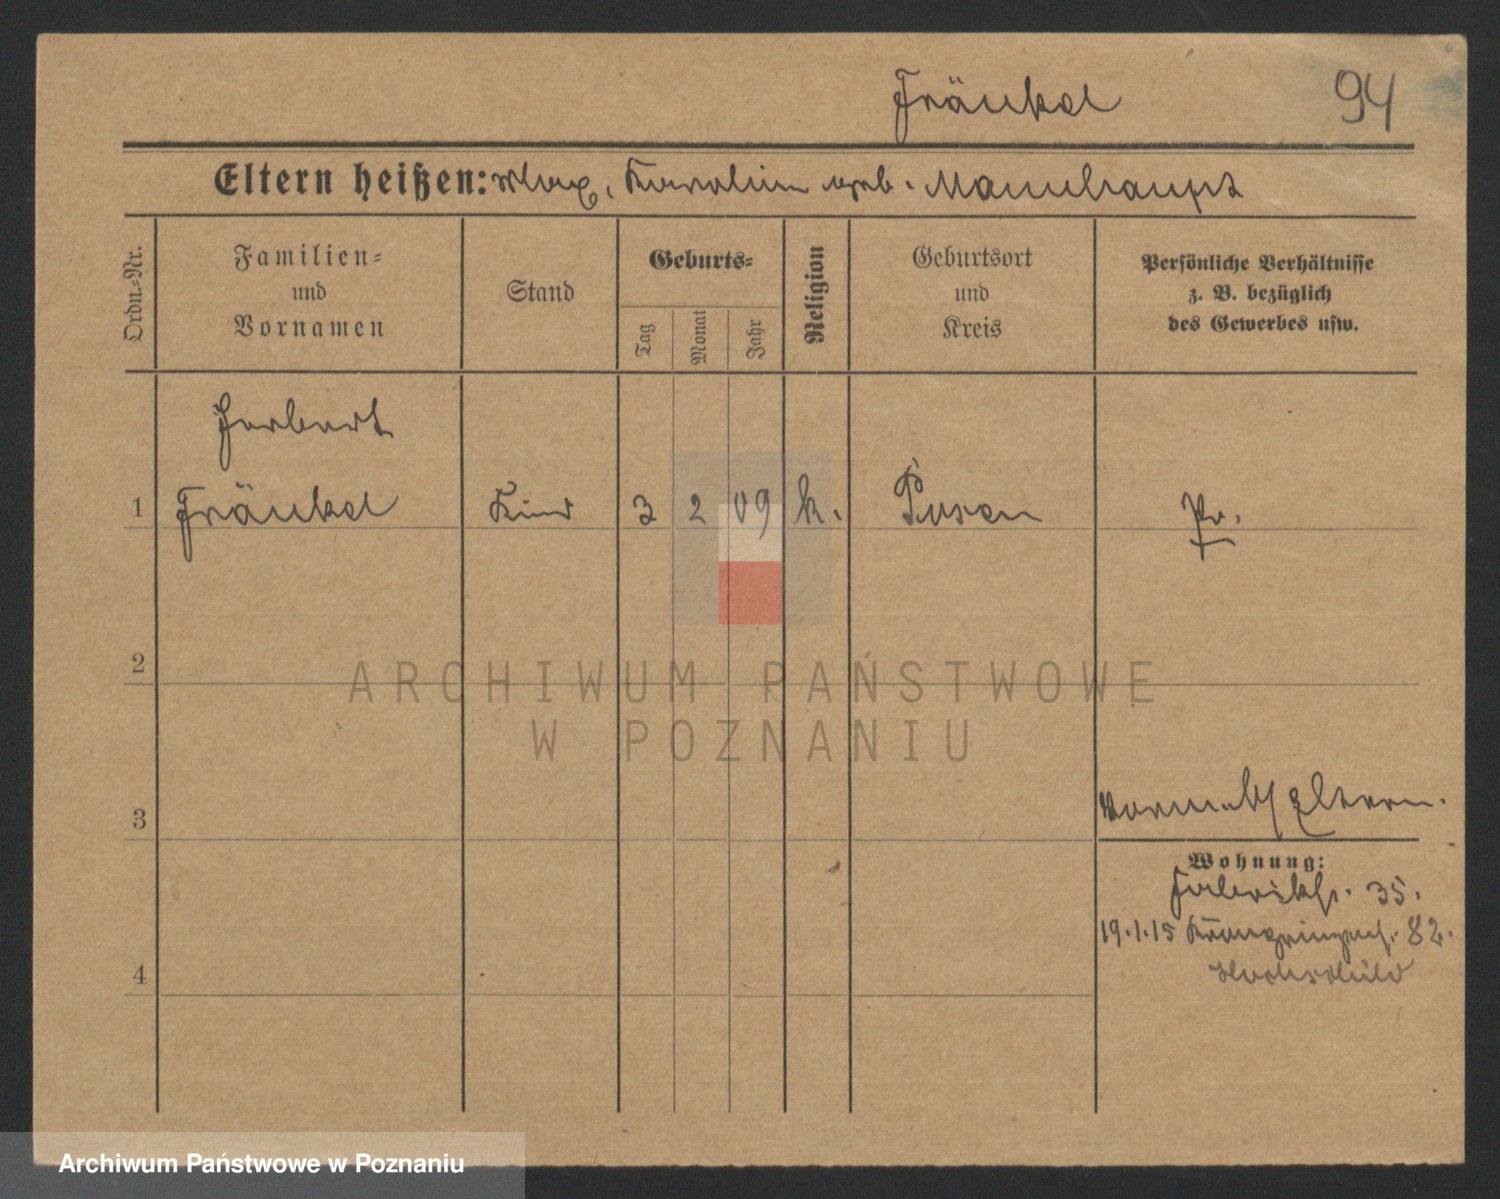 Fränkel 94
Eltern heißen: Max, Karolin geb. Mannhaupt
Ordn.=Nr.
Familien=
und
Vornamen
Stand
Geburts=
Tag
Monat
Jahr
Religion
Geburtsort
und
Kreis
Persönliche Verhältnisse
z. B. bezüglich
des Gewerbes usw.
Herbert
1 Fränkel Kind 3 2 09 k. Posen Pr.
2
ARCHIWUM PAŃSTWOWE
W POZNANIU
3 Eltern.
Wohnung:
Fabrikst. 35.
19.1.15 Kronprinzenst. 82.
4
Archiwum Państwowe w Poznaniu